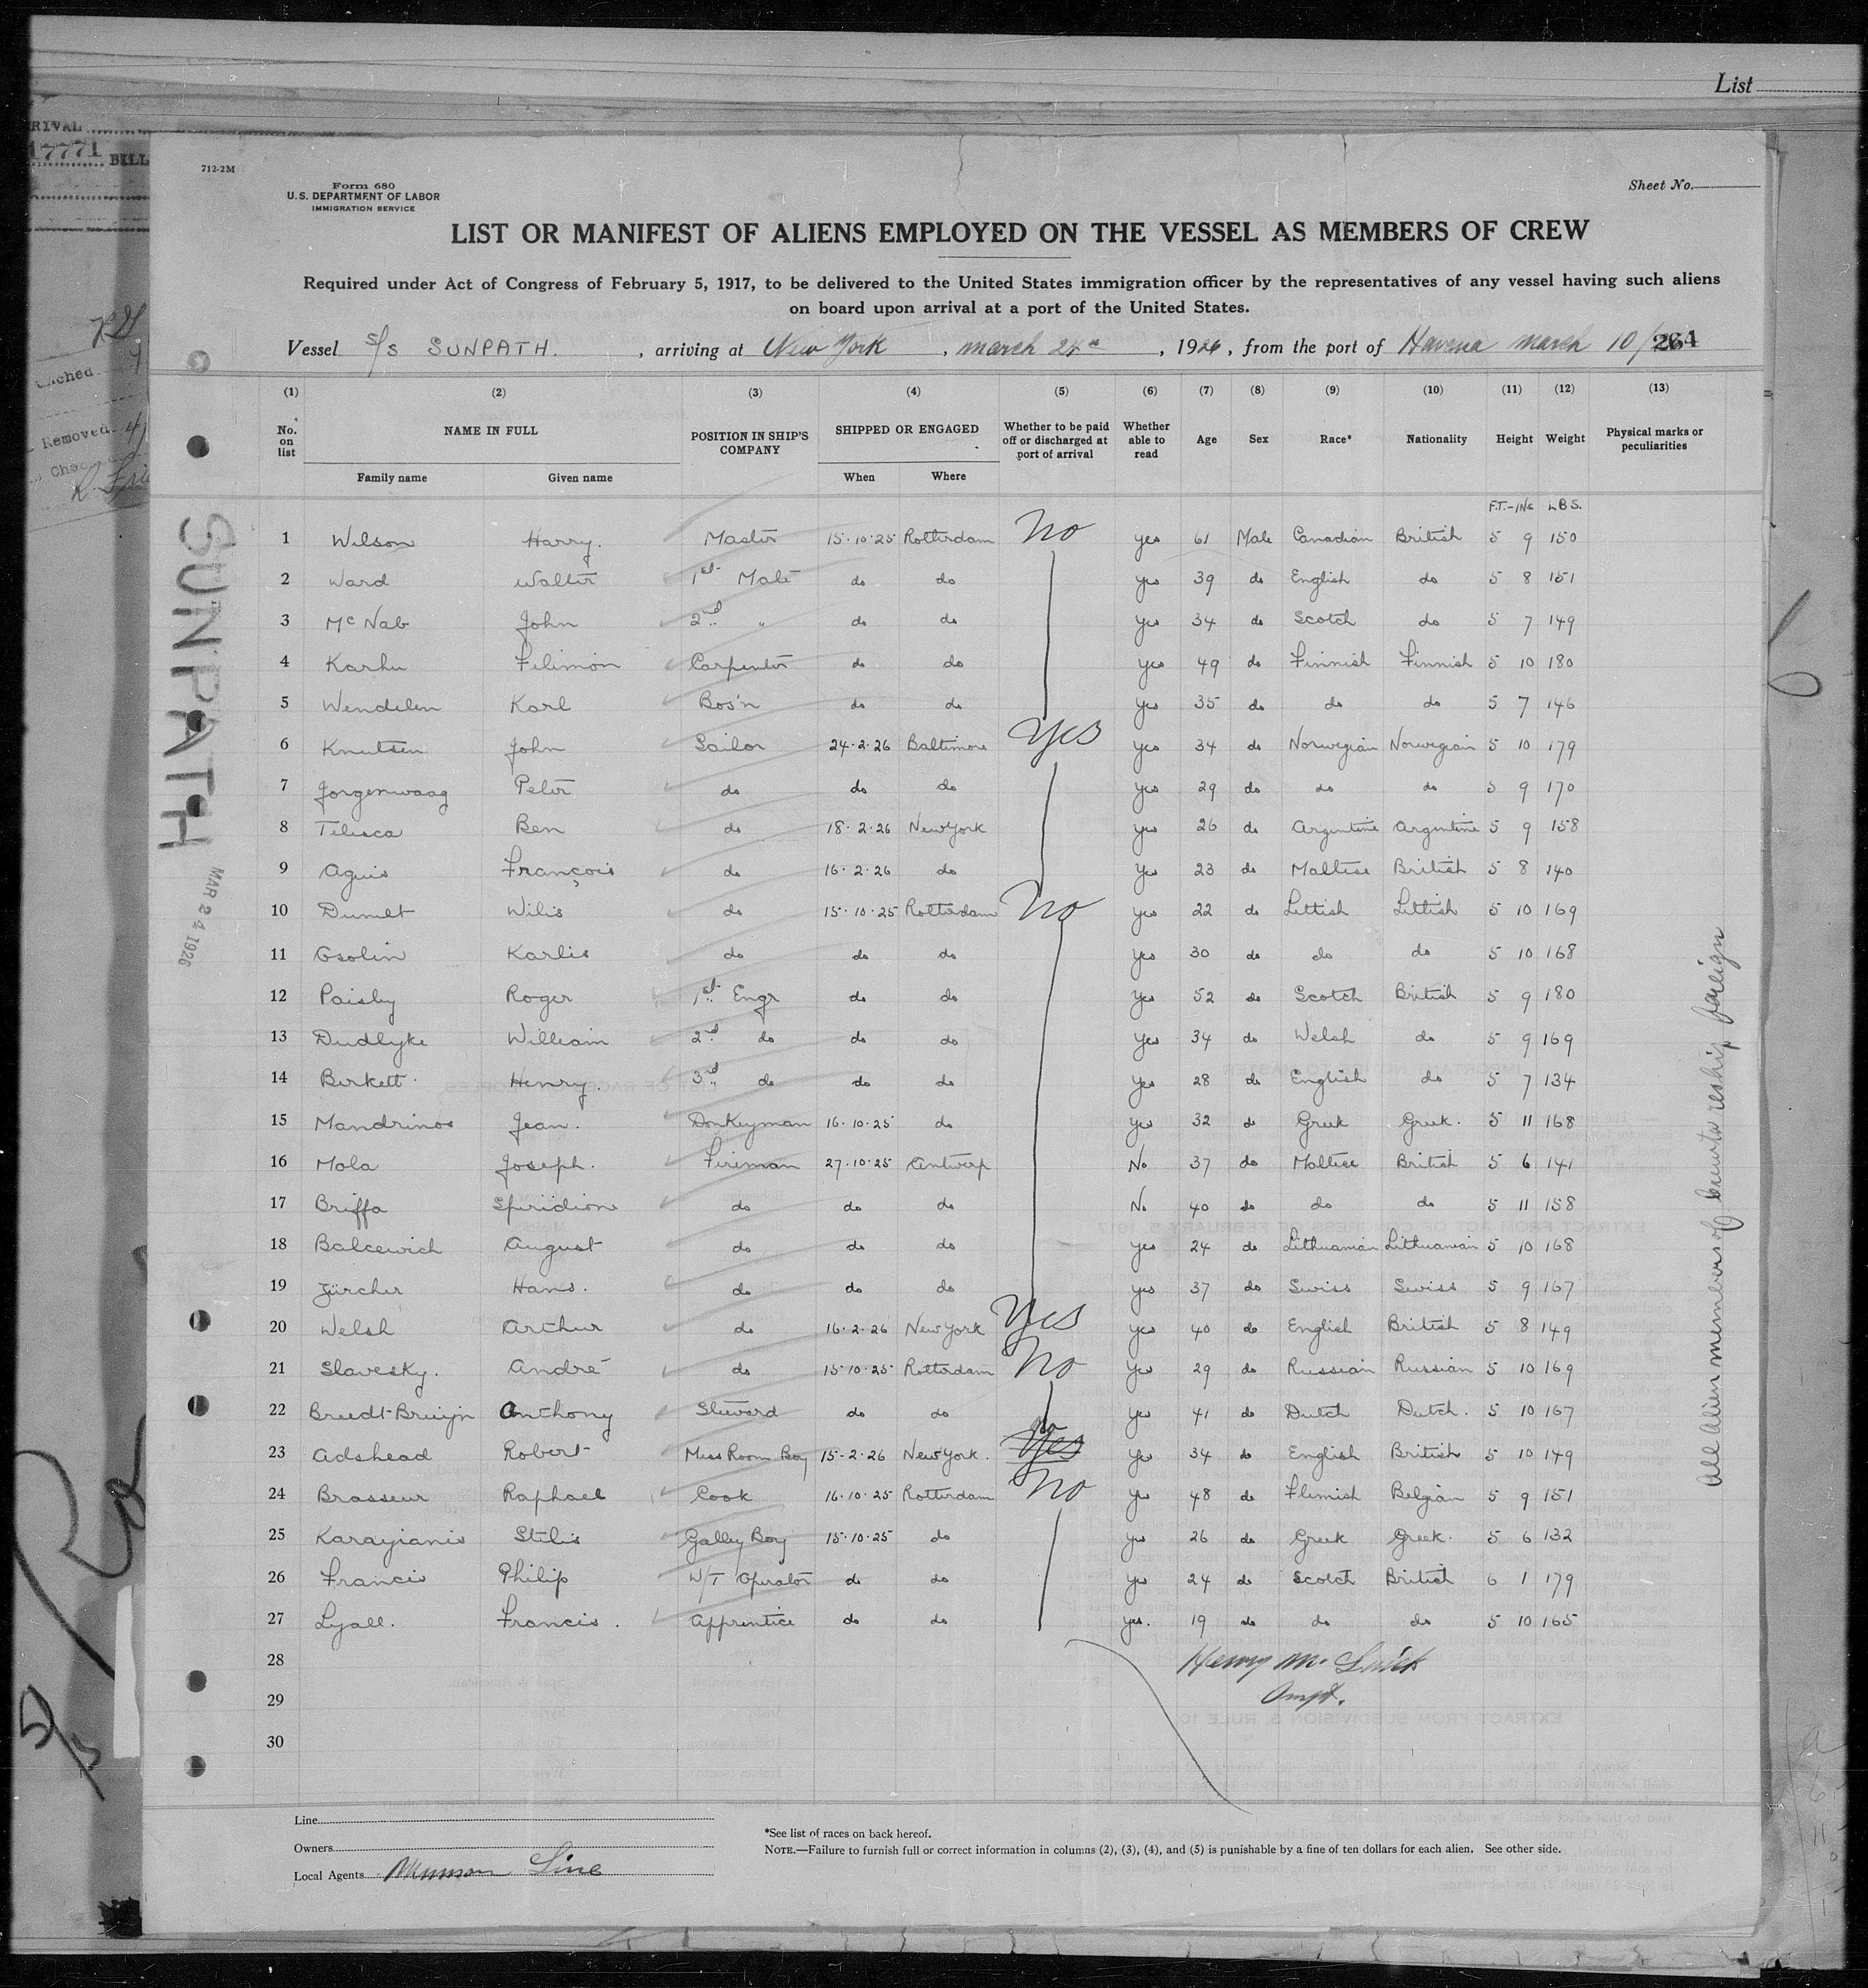 List
RIVAL
17771 BILL
ached
Removed
712-2M
Form 680
U.S. DEPARTMENT OF LABOR
IMMIGRATION SERVICE
Sheet No.
LIST OR MANIFEST OF ALIENS EMPLOYED ON THE VESSEL AS MEMBERS OF CREW
Required under Act of Congress of February 5, 1917, to be delivered to the United States immigration officer by the representatives of any vessel having such aliens
on board upon arrival at a port of the United States.
Vessel S/S SUNPATH. , arriving at New York , march 24th , 1926 , from the port of Havana march 10/ 264
(1) (2) (3) (4) (5) (6) (7) (8) (9) (10) (11) (12) (13)
No. on list NAME IN FULL Family name Given name POSITION IN SHIP'S COMPANY SHIPPED OR ENGAGED When Where Whether to be paid off or discharged at port of arrival Whether able to read Age Sex Race* Nationality Height Weight Physical marks or peculiarities
FT.-INS LBS.
1 Wilson Harry. Master 15.10.25 Rotterdam No yes 61 Male Canadian British 5 9 150
2 Ward Walter 1st Mate do do yes 39 do English do 5 8 151
3 McNab John 2nd " do do yes 34 do Scotch do 5 7 149
4 Karhu Filimon Carpenter do do yes 49 do Finnish Finnish 5 10 180
5 Wendelen Karl Bos'n do do yes 35 do do do 5 7 146
6 Knutsen John Sailor 24.2.26 Baltimore Yes yes 34 do Norwegian Norwegian 5 10 179
7 Jorgenwaag Peter do do do yes 29 do do do 5 9 170
8 Telisca Ben do 18.2.26 New York yes 26 do Argentine Argentine 5 9 158
9 Aguis François do 16.2.26 do yes 23 do Maltese British 5 8 140
10 Dumlt Wilis do 15.10.25 Rotterdam No yes 22 do Lettish Lettish 5 10 169
11 Osolin Karlis do do do yes 30 do do do 5 10 168
12 Paisley Roger 1st Engr do do yes 52 do Scotch British 5 9 180
13 Dudlyke William 2nd do do do yes 34 do Welsh do 5 9 169
14 Birkett. Henry. 3rd do do do yes 28 do English do 5 7 134
15 Mandrinos Jean. Donkeyman 16.10.25 do yes 32 do Greek Greek. 5 11 168
16 Mola Joseph. Fireman 27.10.25 Antwerp No 37 do Maltese British 5 6 141
17 Briffa Spiridione do do do No 40 do do do 5 11 158
18 Balcewich August do do do yes 24 do Lithuanian Lithuanian 5 10 168
19 Zürcher Hans. do do do yes 37 do Swiss Swiss 5 9 167
20 Welsh Arthur do 16.2.26 New York Yes yes 40 do English British 5 8 149
21 Slavesky. André do 15.10.25 Rotterdam No yes 29 do Russian Russian 5 10 169
22 Breedt-Bruijn Anthony Steward do do yes 41 do Dutch Dutch. 5 10 167
23 Adshead Robert Mess Room Boy 15-2-26 New York. no Yes yes 34 do English British 5 10 149
24 Brasseur Raphael Cook 16.10.25 Rotterdam No yes 48 do Flemish Belgian 5 9 151
25 Karayianis Stelis Galley Boy 15.10.25 do yes 26 do Greek Greek. 5 6 132
26 Francis Philip W/T Operator do do yes 24 do Scotch British 6 1 179
27 Lyall. Francis. Apprentice do do yes. 19 do do do 5 10 165
28
29
30
Henry M.
SUNPATH
MAR 24 1926
All Alien members of crew to reship foreign
Line
Owners
Local Agents Munson Line
*See list of races on back hereof.
NOTE.—Failure to furnish full or correct information in columns (2), (3), (4), and (5) is punishable by a fine of ten dollars for each alien. See other side.